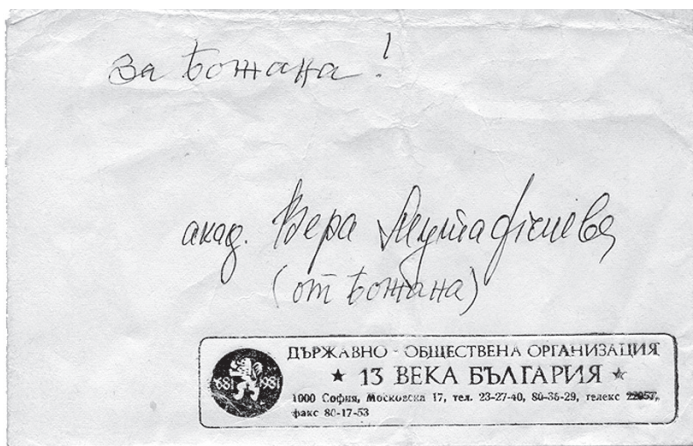 за Божана!
акад. Вера Мутафчиева
(от Божана)
ДЪРЖАВНО - ОБЩЕСТВЕНА ОРГАНИЗАЦИЯ
★ 13 ВЕКА БЪЛГАРИЯ ★
681 1981
1000 София, Московска 17, тел. 23-27-40, 80-36-29, телекс 22057,
факс 80-17-53